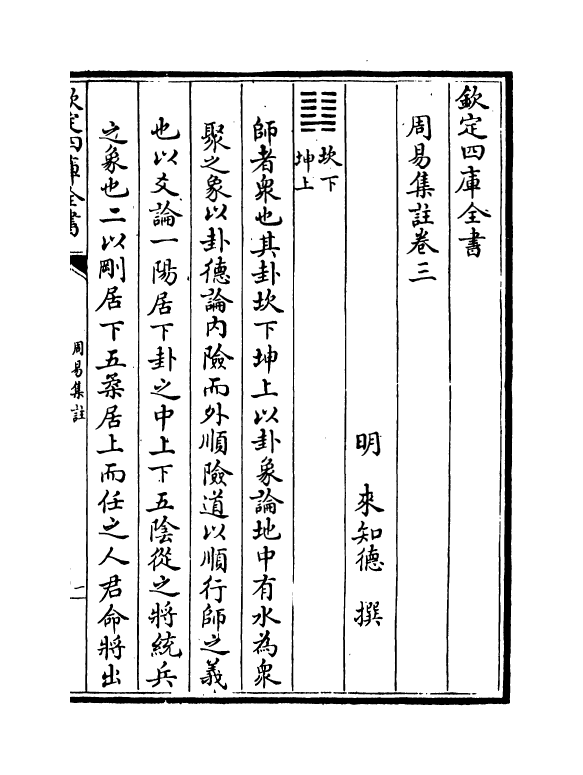 欽定四庫全書
周易集註卷三
明 來知德 撰
䷆
坎下
坤上
師者衆也其卦坎下坤上以卦象論地中有水為衆
聚之象以卦德論內險而外順險道以順行師之義
也以爻論一陽居下卦之中上下五陰從之將統兵
之象也二以剛居下五柔居上而任之人君命將出
欽定四庫全書
周易集註
一